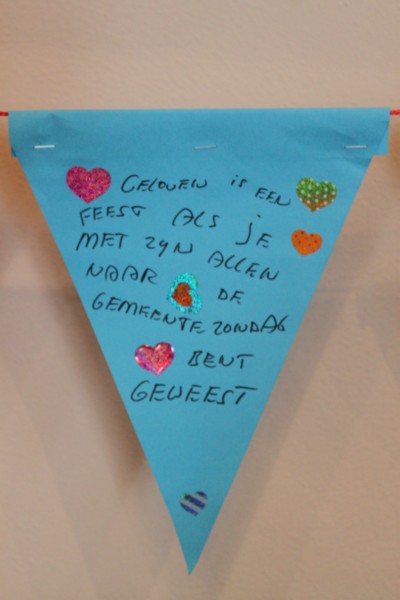 GELOVEN is EEN
FEEST ALS JE
MET ZYN ALLEN
NAAR DE
GEMEENTEZONDAG
BENT
GEWEEST